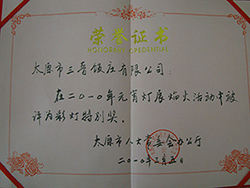 荣誉证书
HONORARY CREDENTIAL
太原市三晋饭店有限公司：
在二〇一〇年元宵灯展焰火活动中被
评为彩灯特别奖。
太原市人大常委会办公厅
二〇一〇年三月五日